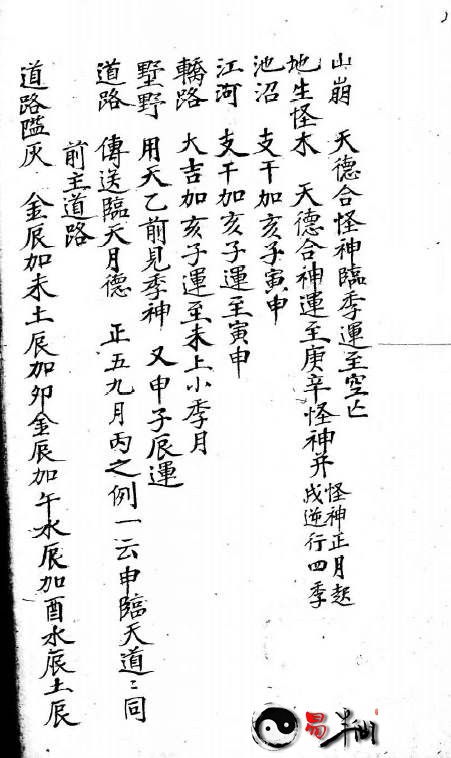 山崩　天德合怪神臨季運至空亡
地生怪木　天德合神運至庚辛怪神并怪神正月起戌逆行四季
池沼　支干加亥子寅申
江河　支干加亥子運至寅申
轎路　大吉加亥子運至未上小季月
墅野　用天乙前見季神　又申子辰運
道路　傳送臨天月德　正五九月丙之例一云申臨天道〻同
前主道路
道路　灰　金辰加未土辰加卯金辰加午水辰加酉水辰土辰
易